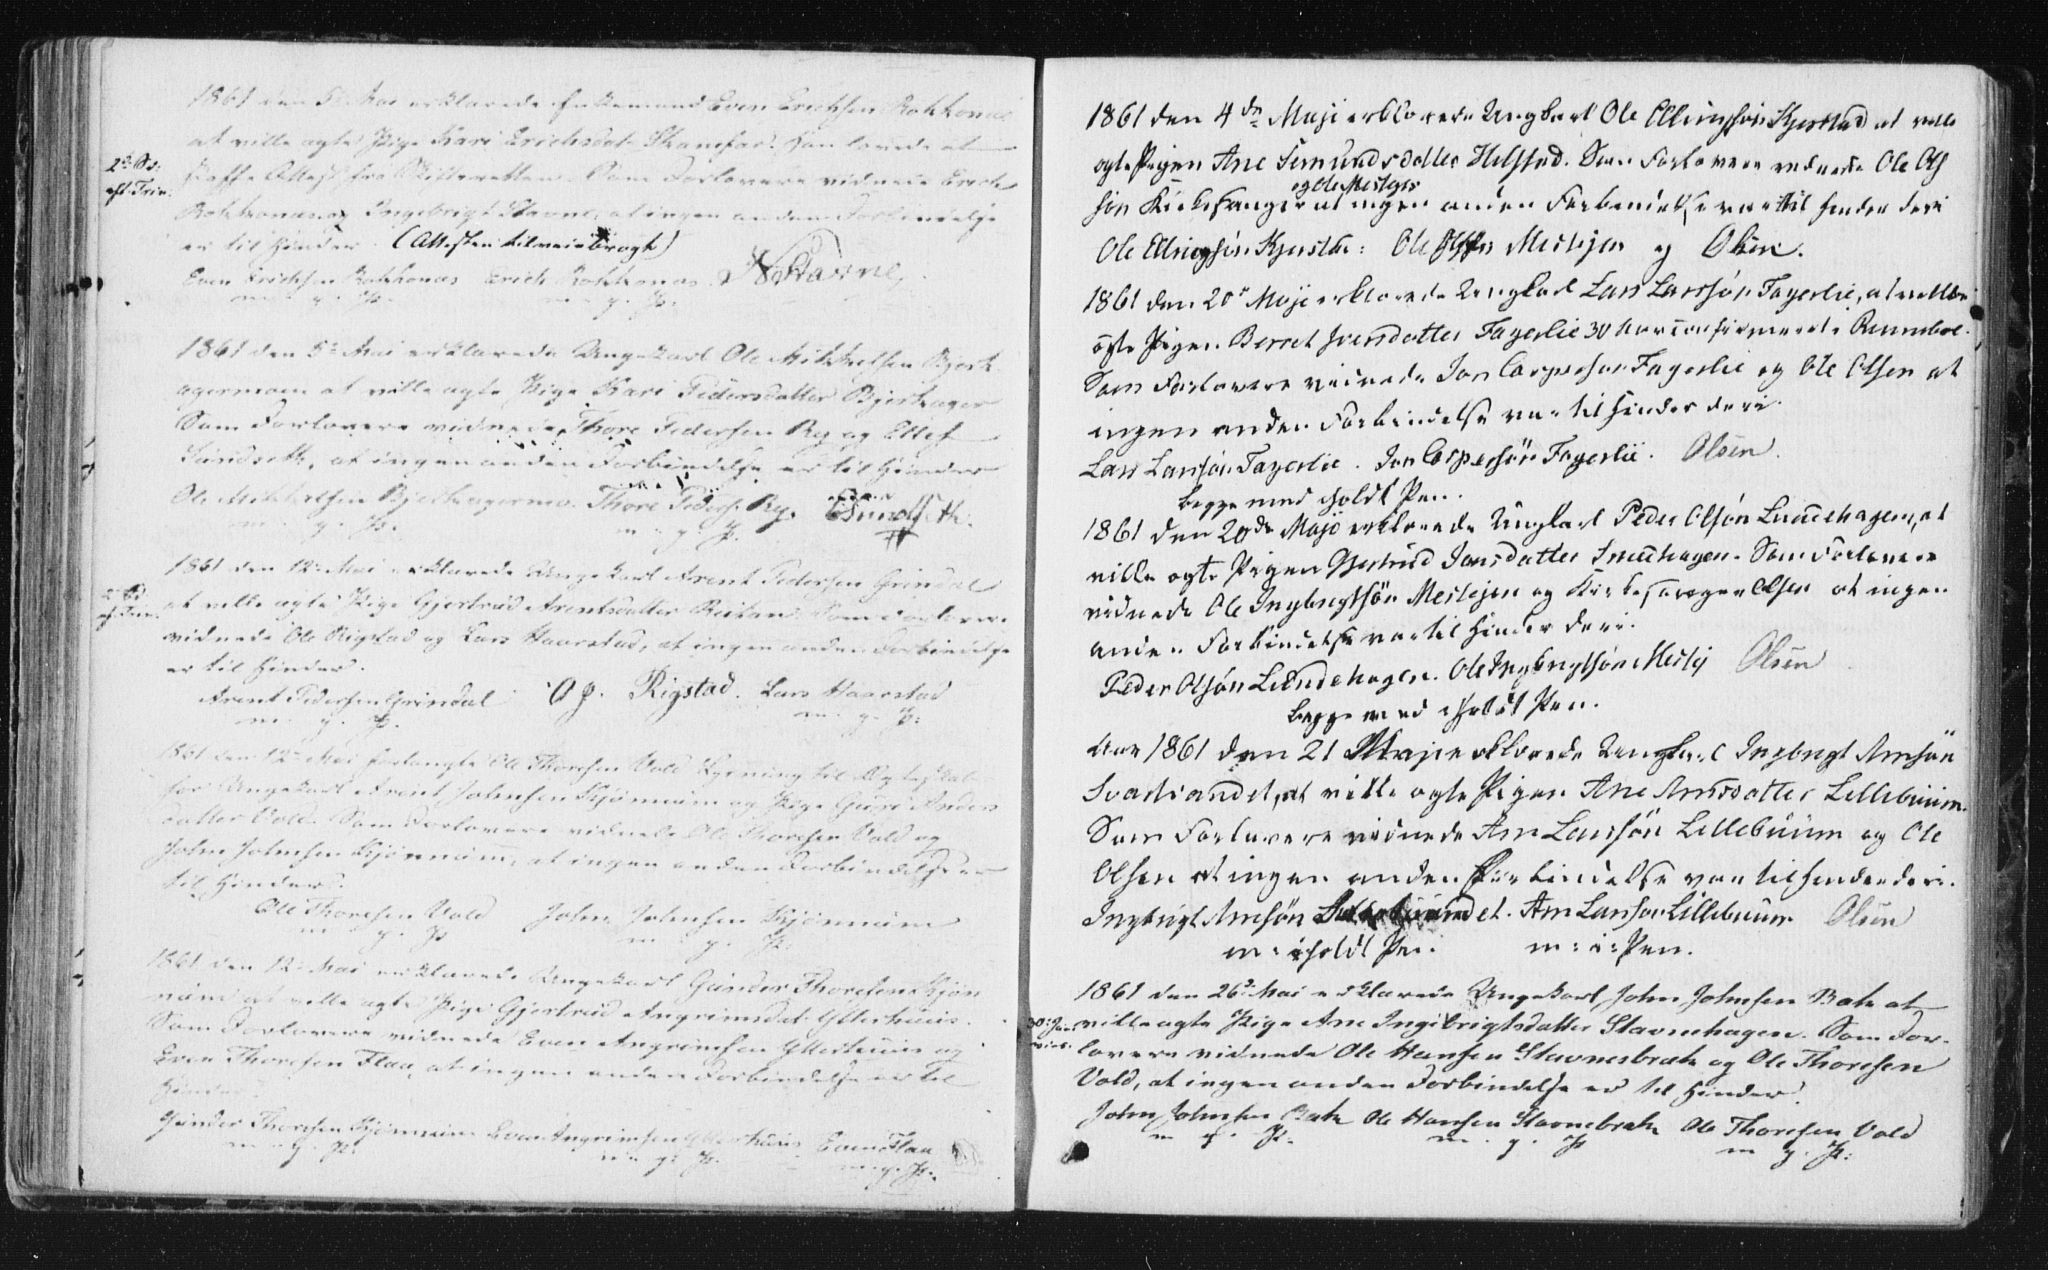 1861 den 5te Mai erklærede Enkemand Even Erichsen Rokkonæs
at ville ægte Pige Kari Erichsdat: Som lovede at
2 S:
eft. Trin:
skaffe Attest fra Skifteretten. Som Forlovere vidnede Erich
Rokkonæs og Ingebrigt Stavne, at ingen anden Forbindelse
er til Hinder. (Attesten tilveiebragt)
Even Erichsen Rokkonæs Erich Rokkonæs Stavne,
m. g. P. m. g. P.
1861 den 5te Mai erklærede Ungekarl Ole Mikkelsen Bjerk-
agermoen at ville ægte Pige Kari Pedersdatter Bjerkager
Som Forlovere vidnede Thore Pedersen Ry og Ellef
Sundseth, at ingen anden Forbindelse er til Hinder
Ole Mikkelsen Bjerkagermo. Thore Peders. Ry. ESundseth.
m. g. P. m. g. P.
1861 den 12te Mai erklærede Ungekarl Arent Pedersen Grindal
at ville ægte Pige Gjertrud Arentsdatter Reitan. Som Forlovere
vidnede Ole Rigstad og Lars Haarstad, at ingen anden Forbindelse
er til Hinder.
Arent Pedersen Grindal O J. Rigstad. Lars Haarstad
m. g. P. m. g. P:
1861 den 12te Mai forlangte Ole Thoresen Vold Lysning til Ægteskab
for Ungekarl Arent Johnsen Kjønnum og Pige Guri Anders
datter Vold. Som Forlovere vidnede Ole Thoresen Vold og
John Johnsen Kjønnum, at ingen anden Forbindelse er
til Hinder.
Ole Thoresen Vold John Johnsen Kjønnum
m. g. P. m. g. P.
1861 den 12te Mai erklærede Ungekarl Gunder Thoresen Kjøn
num at ville ægte Pige Gjertrud Angrimsdat: Ytterhuus.
Som Forlovere vidnede Even Angrimsen Ytterhuus og
Even Thoresen Flaa, at ingen anden Forbindelse er til
Hinder.
Gunder Thoresen Kjønnum Even Angrimsen Ytterhuus Even Flaa
m. g. P. m. g. P. m. g. P.
1861 den 4de Maji erklærede Ungkarl Ole Ellingsøn Kjerstad at ville
ægte Pigen Ane Semundsdatter Helstad. Som Forlovere vidnede Ole Ols
og Ole Mesteps
søn Kirkesanger at ingen anden Forbindelse var til hinder deri
Ole Ellingsøn Kjerstad: Ole Mestejen og Olsen.
1861 den 20de Maji erklærede Ungkarl Lars Larssøn Fagerlie, at ville
ægte Pigen Berret Svendsdatter Fagerlie 30 Aar confirmeret i Rennebue.
Som Forlovere vidnede Jon Caspersøn Fagerlie og Ole Olsen at
ingen anden Forbindelse var til hinder deri.
Lars Larssøn Fagerlie. Jon Caspersøn Fagerlie. Olsen.
begge med iholdt Pen.
1861 den 20de Maji erklærede Ungkarl Peder Olsøn Lundehagen, at
ville ægte Pigen Gjertrud Jonsdatter Sneehagen. Som Forlovere
vidnede Ole Ingbrigtsøn Mestejen og Kirkesanger Olsen at ingen
anden Forbindelse var til Hinder deri.
Peder Olsøn Lundehagen. Ole Ingbrigtsøn Mestej Olsen
begge med iholdt Pen.
Aar 1861 den 21 Maji erklærede Ungkarl Ingbrigt Arnsøn
Svartsandet, at ville ægte Pigen Ane Arnsdatter Lillebuum.
Som Forlovere vidnede Arn Larssøn Lillebuum og Ole
Olsen at ingen anden Forbindelse var til hinder deri.
Ingbrigt Arnsøn Svartsandet. Arn Larssøn Lillebuum Olsen
m: iholdt Pen: m: i: Pen.
1861 den 26de Mai erklærede Ungekarl John Johnsen Bak at
30: Juni
vies.
ville ægte Pige Ane Ingebrigtsdatter Stavnehagen. Som For-
lovere vidnede Ole Hansen Stavnesbrak og Ole Thoresen
Vold, at ingen anden Forbindelse er til Hinder.
John Johnsen Bak Ole Hansen Stavnebrak Ole Thoresen Vold
m. g. P. m. g. P. m. g. P.